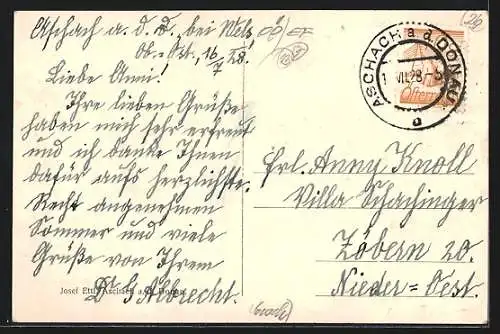 Aschach a. d. D., bei Wels
Ob.-Öst., 16/7 28.
Liebe Anni!
Ihre lieben Grüße
haben mich sehr erfreut
und ich danke Ihnen
dafür aufs herzlichste.
Recht angenehmen
Sommer und viele
Grüße von Ihrem
Dr G Albrecht.
Josef Aschach a. d. Donau
ASCHACH a. d. DONAU
VII.28
a
Österreich
Frl. Anny Knoll
Villa Schachinger
Zöbern 20.
Nieder=Oest.